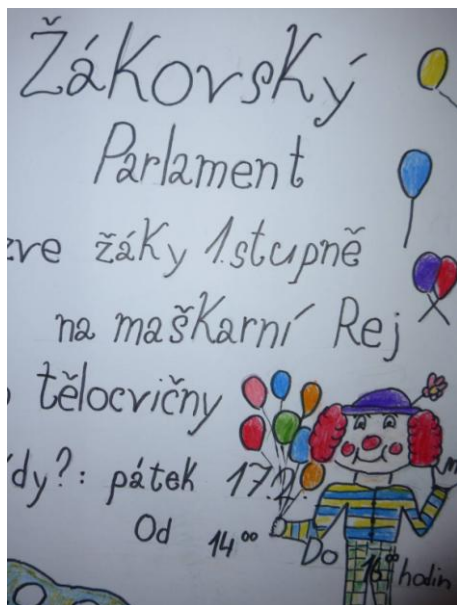 Žákovský
Parlament
zve žáky 1.stupně
na maškarní Rej
tělocvičny
dy?: pátek 17.2.
Od 14⁰⁰ Do hodin